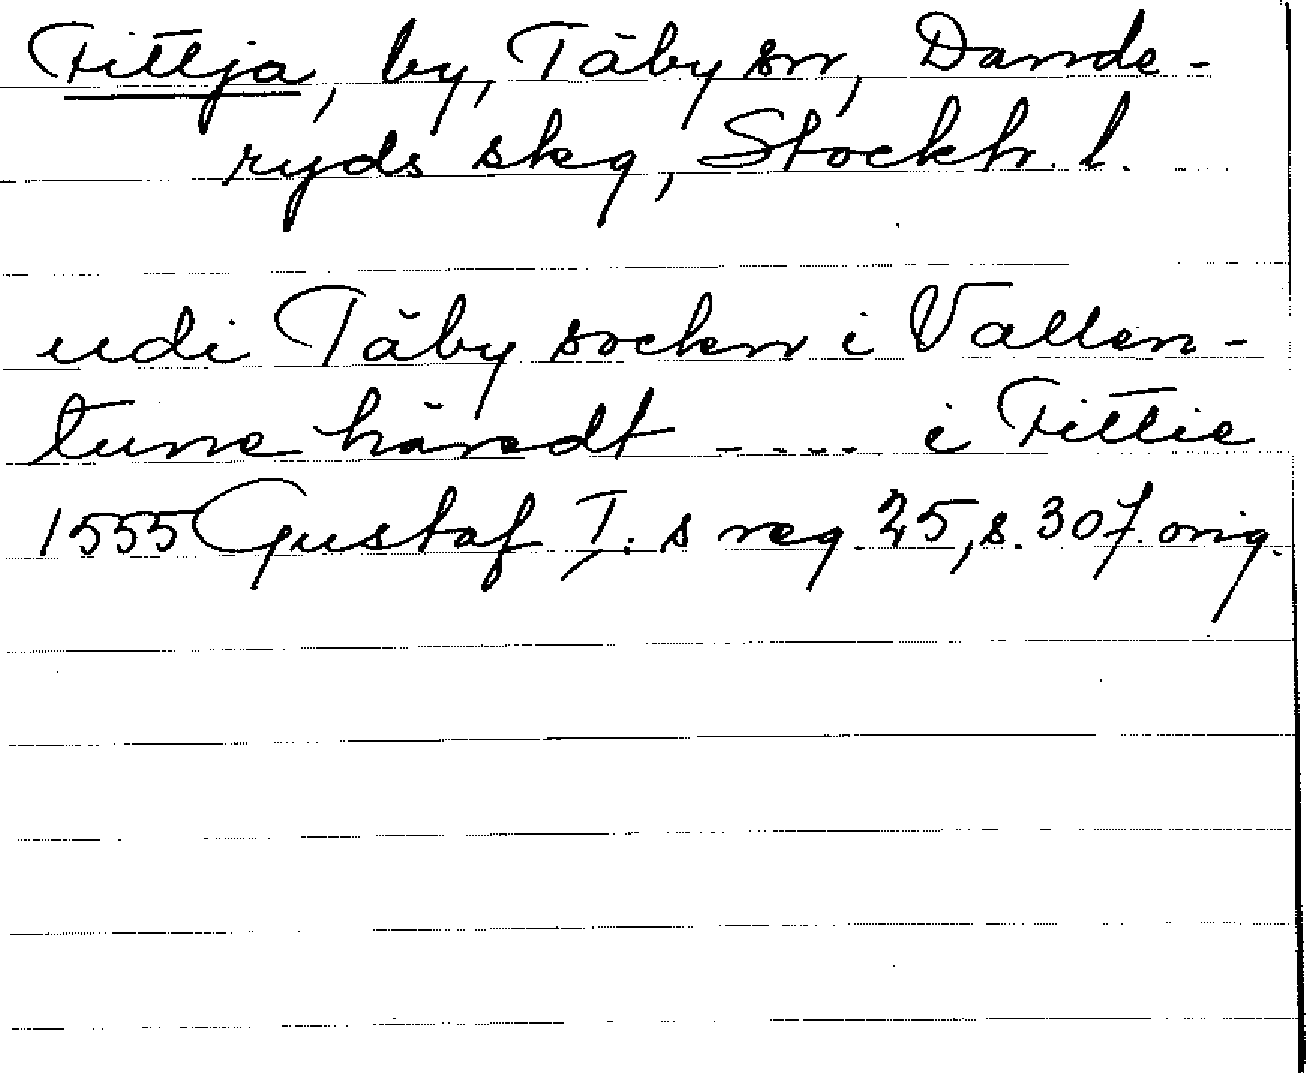 Fittja, by, Täby sn, Dande-
ryds skg, Stockh. l.
udi Täby sockn i Vallen-
tune häredt - - - - i Fittie
1555 Gustaf I:s reg. 25, s. 307. orig.